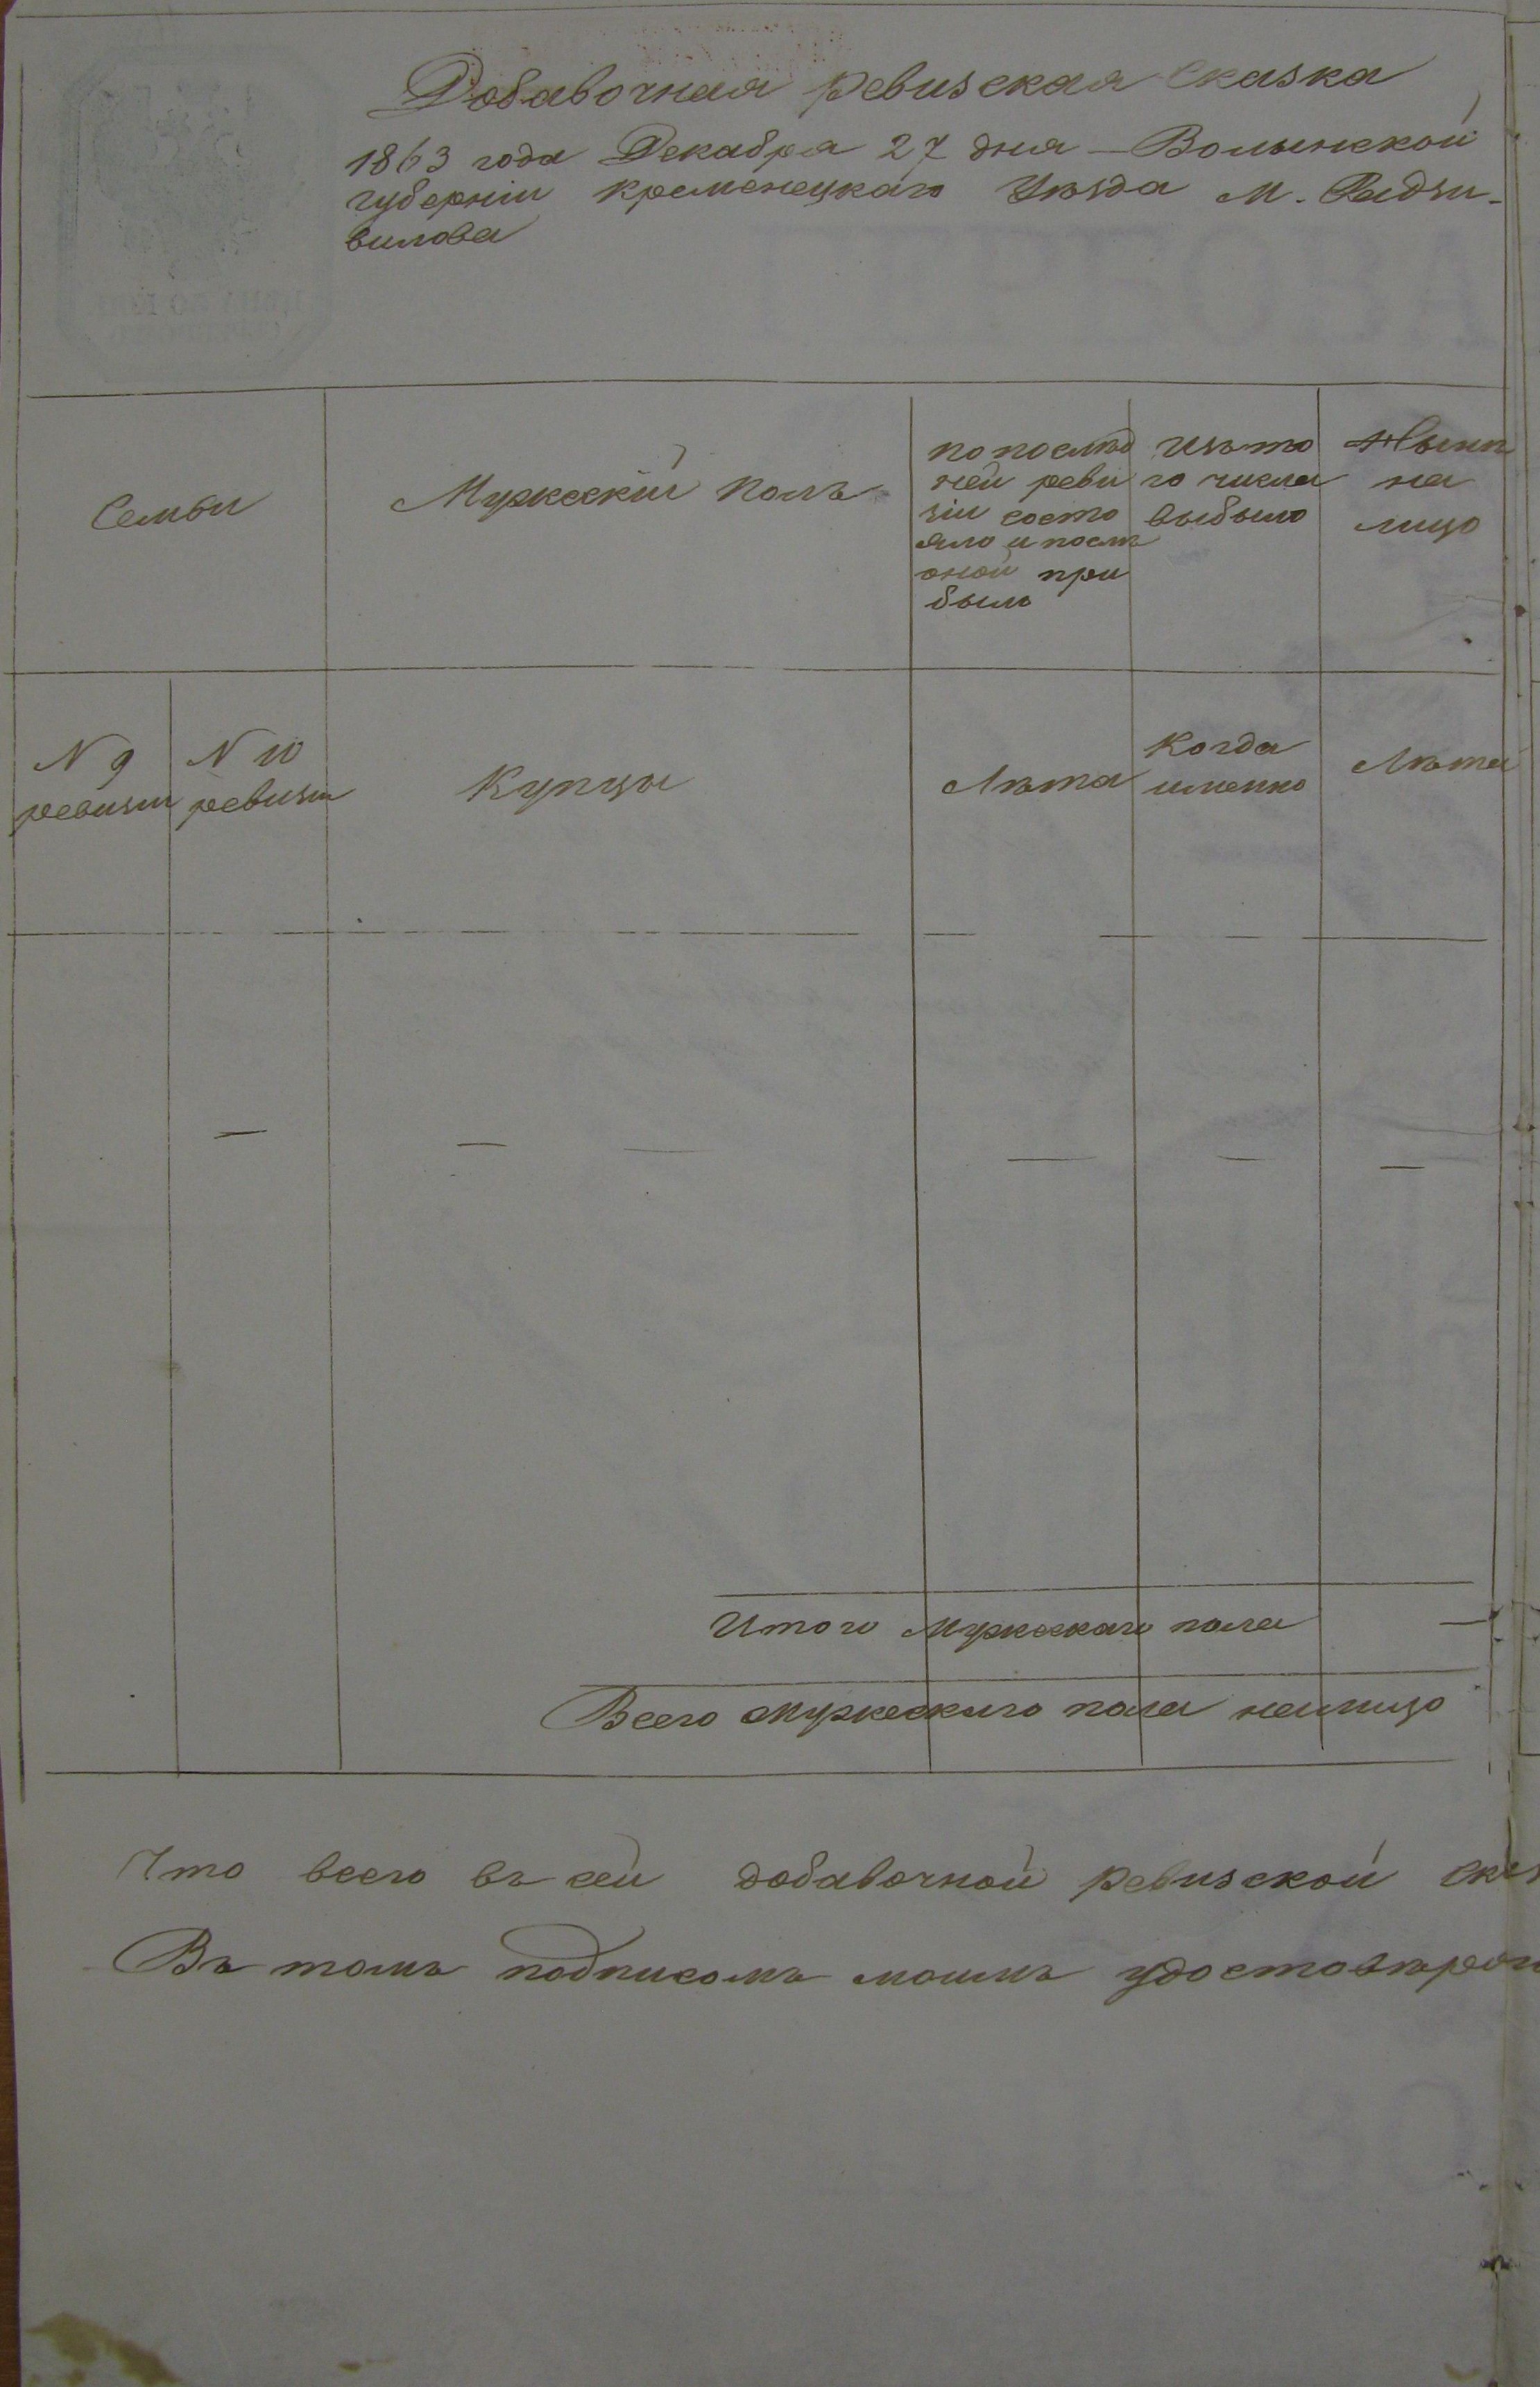 Добавочная ревизская сказка
1863 года Декабря 27 дня — Волынской
губерніи Кременецкаго Уѣзда М. Радзи-
вилова
Семьи
Мужескій полъ
по послѣд
ней реви
зіи состо
яло и послѣ
оной при
было
Изъ то
го числа
выбыло
Нынѣ
на
лицо
N 9
ревизіи
N 10
ревизіи
Купцы
Лѣта
Когда
именно
Лѣта
— — — — — —
Итого Мужескаго пола —
Всего Мужескаго пола налицо
Что всего въ сей добавочной ревизской
Въ томъ подписомъ моимъ